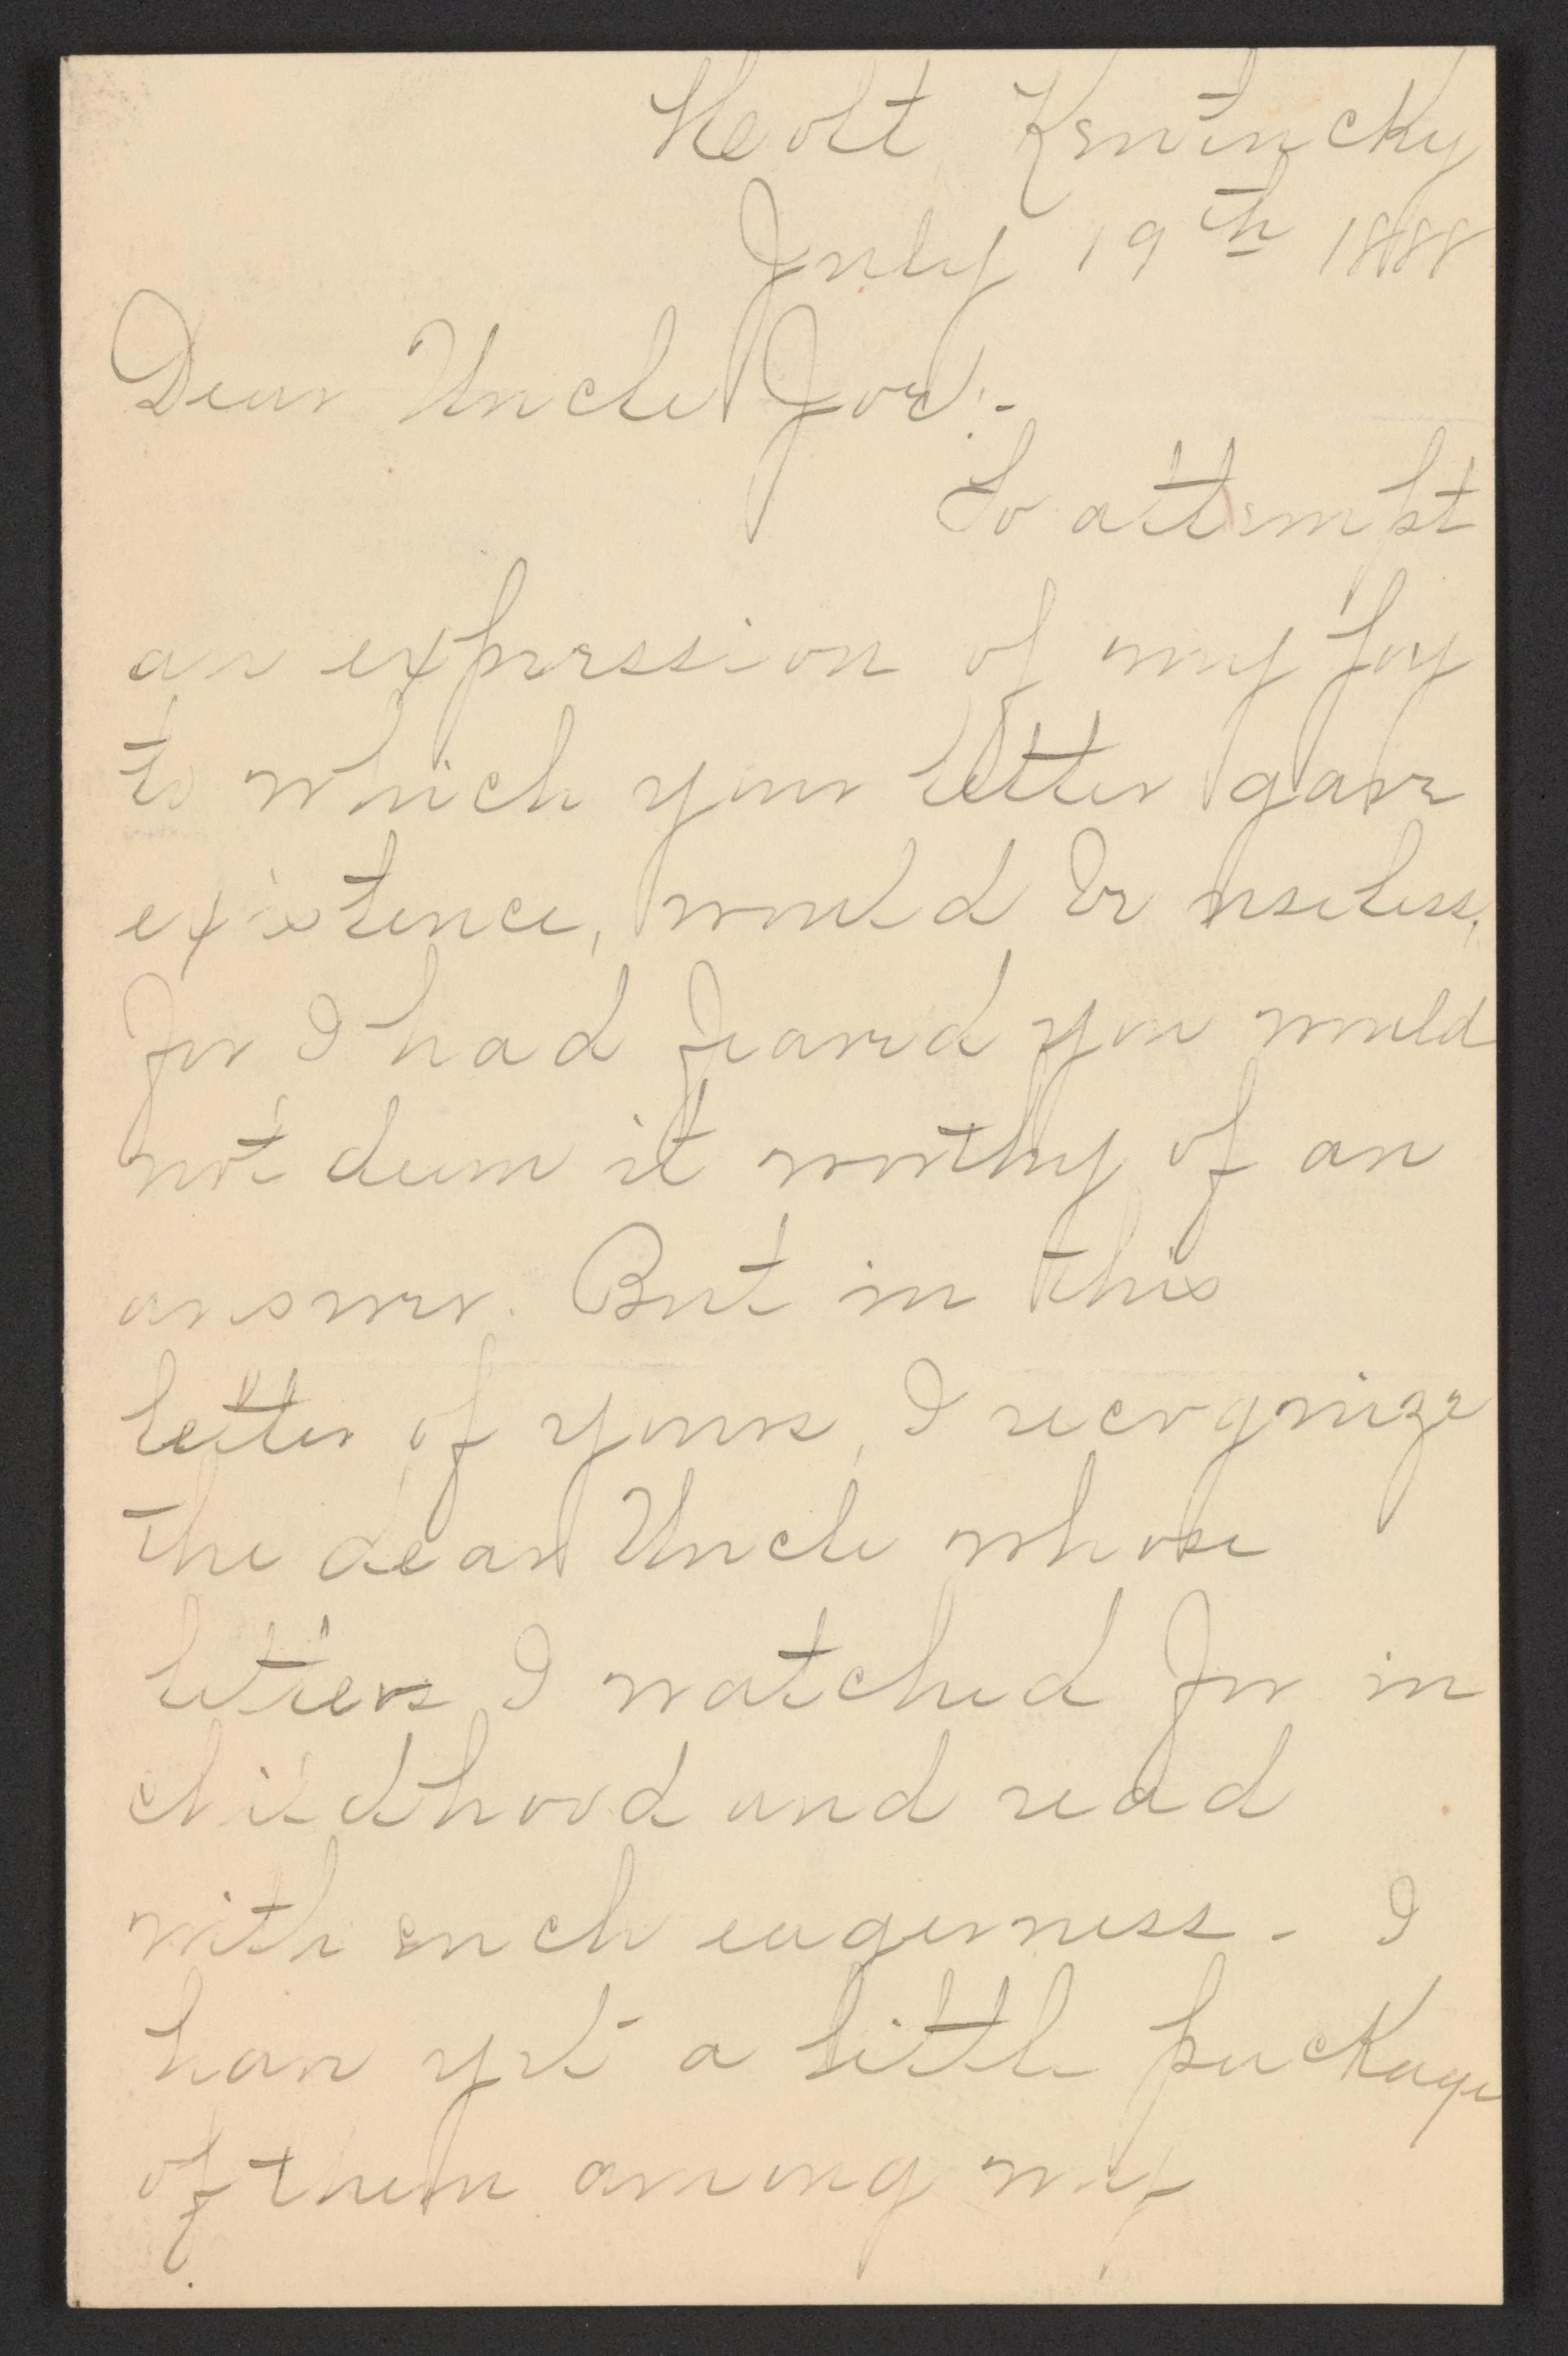 Holt, Kentucky
July 19th 1888
Dear Uncle Joe:-
To attempt
an expression of my joy
to which your letter gave
existence, would be useless,
for I had feared you would
not deem it worthy of an
answer. But in this
letter of yours, I recognize
the dear Uncle whose
letters I watched for in
childhood and read
with such eagerness - I
have yet a little package
of them among my